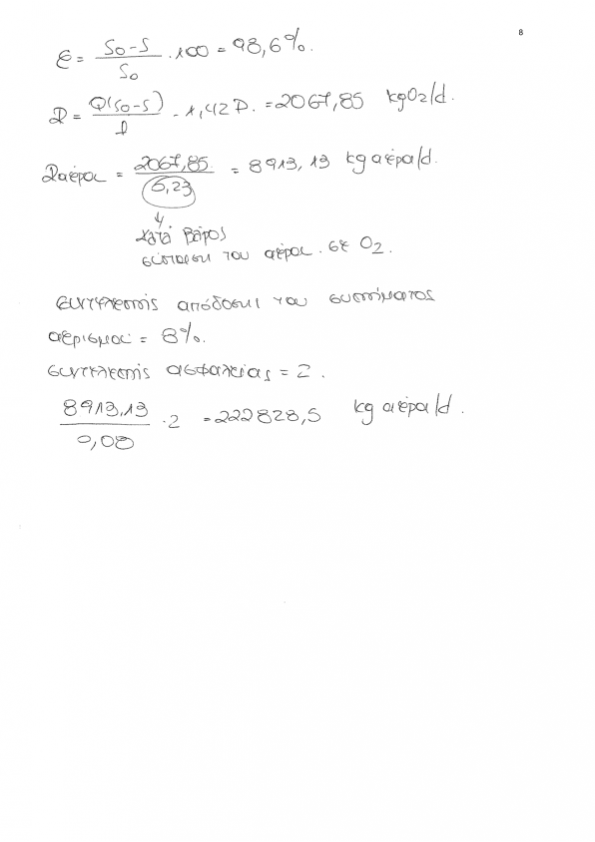 8
E = (S0-S)/S0 · 100 = 98,6%.
R = Q(S0-S)/f - 1,42 P. = 2067,85 kgO2/d.
Rαέρα = 2067,85/0,23 = 8913,13 kg αέρα/d.
κατά βάρος
σύσταση του αέρα σε O2.
συντελεστής απόδοσης του συστήματος
αερισμού = 8%.
συντελεστής ασφαλείας = 2.
8913,13/0,08 · 2 = 222828,5 kg αέρα/d.